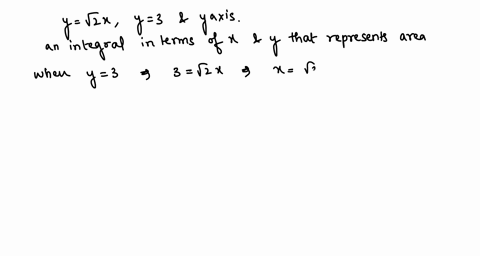 y = √2x, y = 3 & y axis.
an integral in terms of x & y that represents area
when y = 3 ⇒ 3 = √2x ⇒ x = √